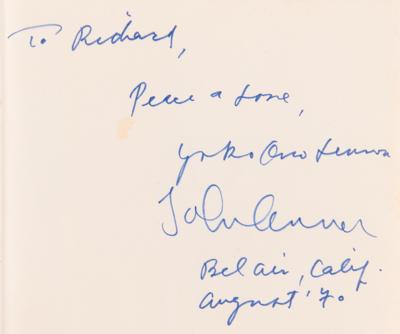 To Richard,
Peace & Love,
Yoko Ono Lennon
John Lennon
Bel air, Calif.
August '70